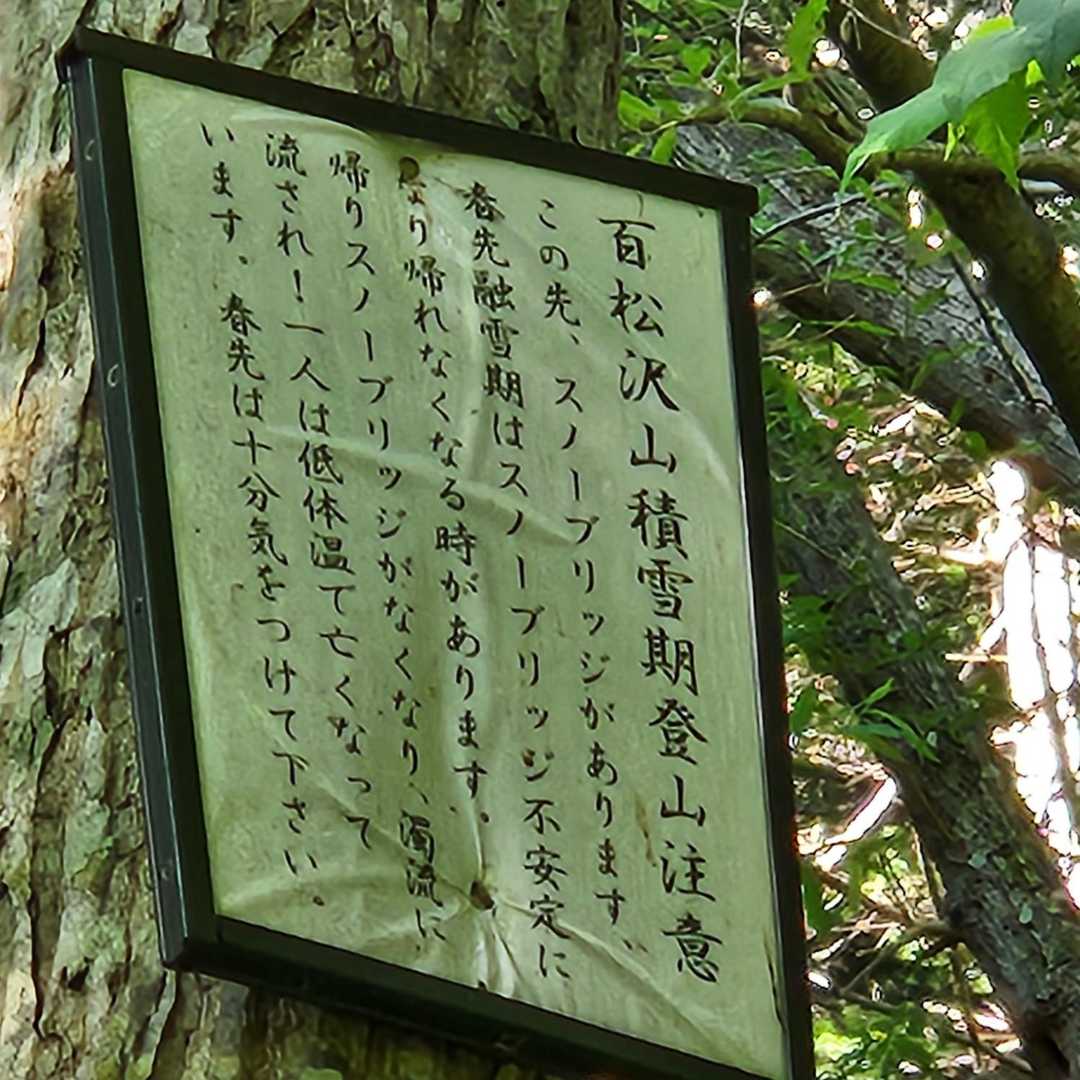 百松沢山積雪期登山注意
この先、スノーブリッジがあります。
春先融雪期はスノーブリッジ不安定に
なり帰れなくなる時があります。
帰りスノーブリッジがなくなり、濁流に
流され!一人は低体温て亡くなって
います、春先は十分気をつけて下さい。